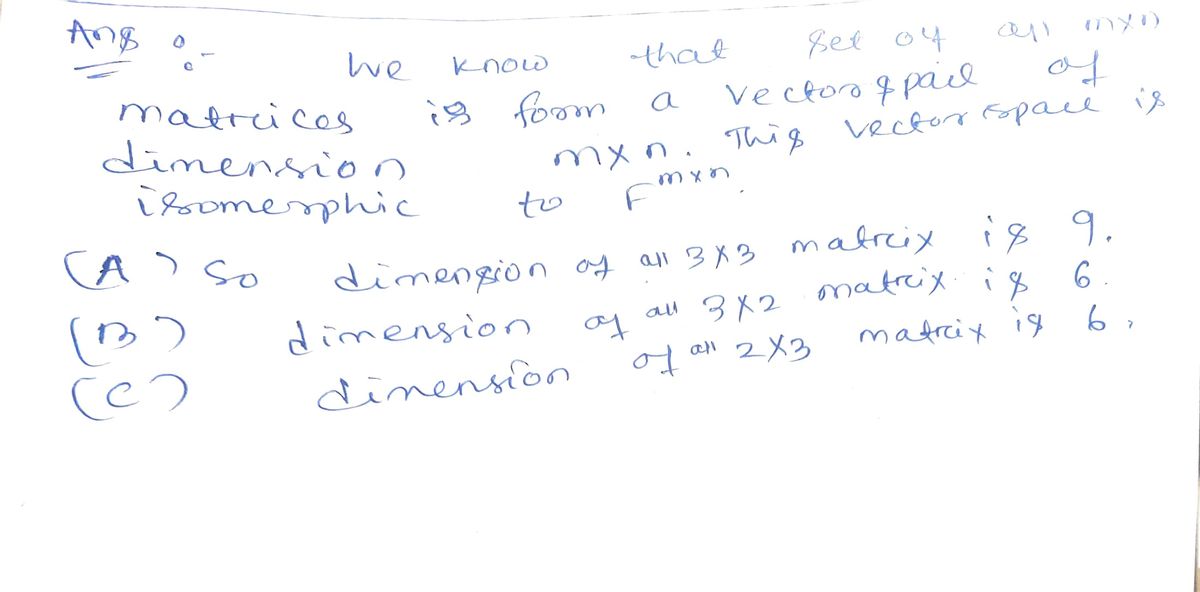 Ans :-
We know that set of all mxn
matrices is form a vector space of
dimension mxn. This vector space is
isomorphic to F^mxn.
(A) So dimension of all 3x3 matrix is 9.
(B) dimension of all 3x2 matrix is 6.
(C) dimension of all 2x3 matrix is 6,